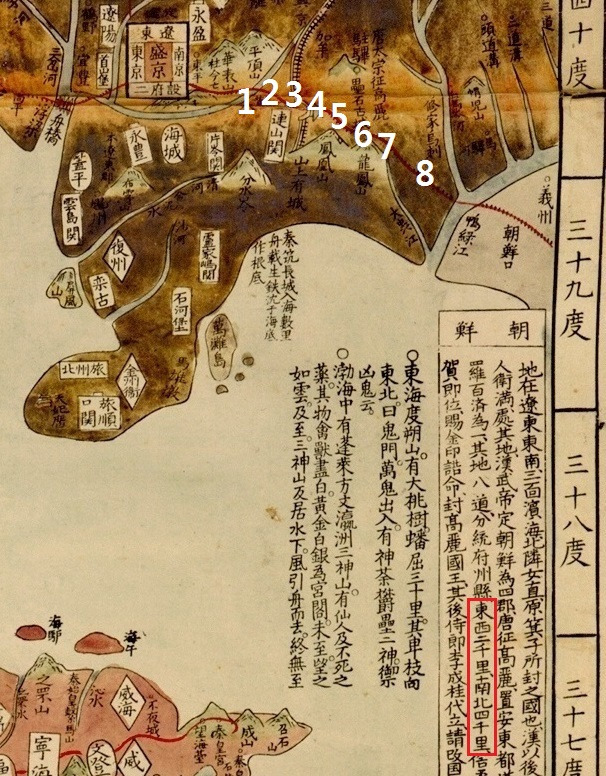 四十度
三十九度
三十八度
三十七度
朝鮮
地在遼東東南三面濱海北隣女直原箕子所封之國也漢以後
人衛滿處其地漢武帝定朝鮮為四郡唐征高麗置安東都
羅百済為一其地八道分統府州縣東西二千里南北四千里
賀即位賜金印誥命封高麗國王其後侍郎李成桂代立請改國
○東海度朔山有大桃樹蟠屈三千里其卑枝向
東北曰鬼門萬鬼出入有神荼欝壘二神禦
凶鬼云
○渤海中有蓬萊方丈瀛洲三神山有仙人及不死之
藥其物禽獸盡白黃金白銀為宮闕未至望之
如雲及至三神山反居水下風引舟而去終無至
秦筑長城入海數里
舟載生鉄沈于海底
作根底
義州
朝鮮口
鴨綠江
1
2
3
4
5
6
7
8
遼陽
永盈
遼東
盛京
南京
東京
平頂山
華表山
首山堡
三道
頭道溝
連山關
鳳凰山
龍鳳山
山上有城
分水岺
片岺關
海城
永豊
蓋平
雲島關
復州
欒古
沙河
石河堡
萬灘島
旅州北
旅順
口關
海驢
海牛
之罘山
威海
不夜城
秦皇宮
望海臺
成山
召石山
寧海
文登
威